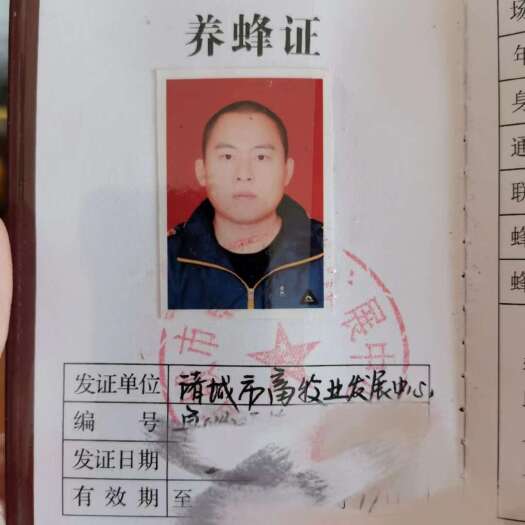 养蜂证
场
年
身
通
联
蜂
蜂
发证单位 诸城市畜牧业发展中心
编 号
发证日期
有效期 至